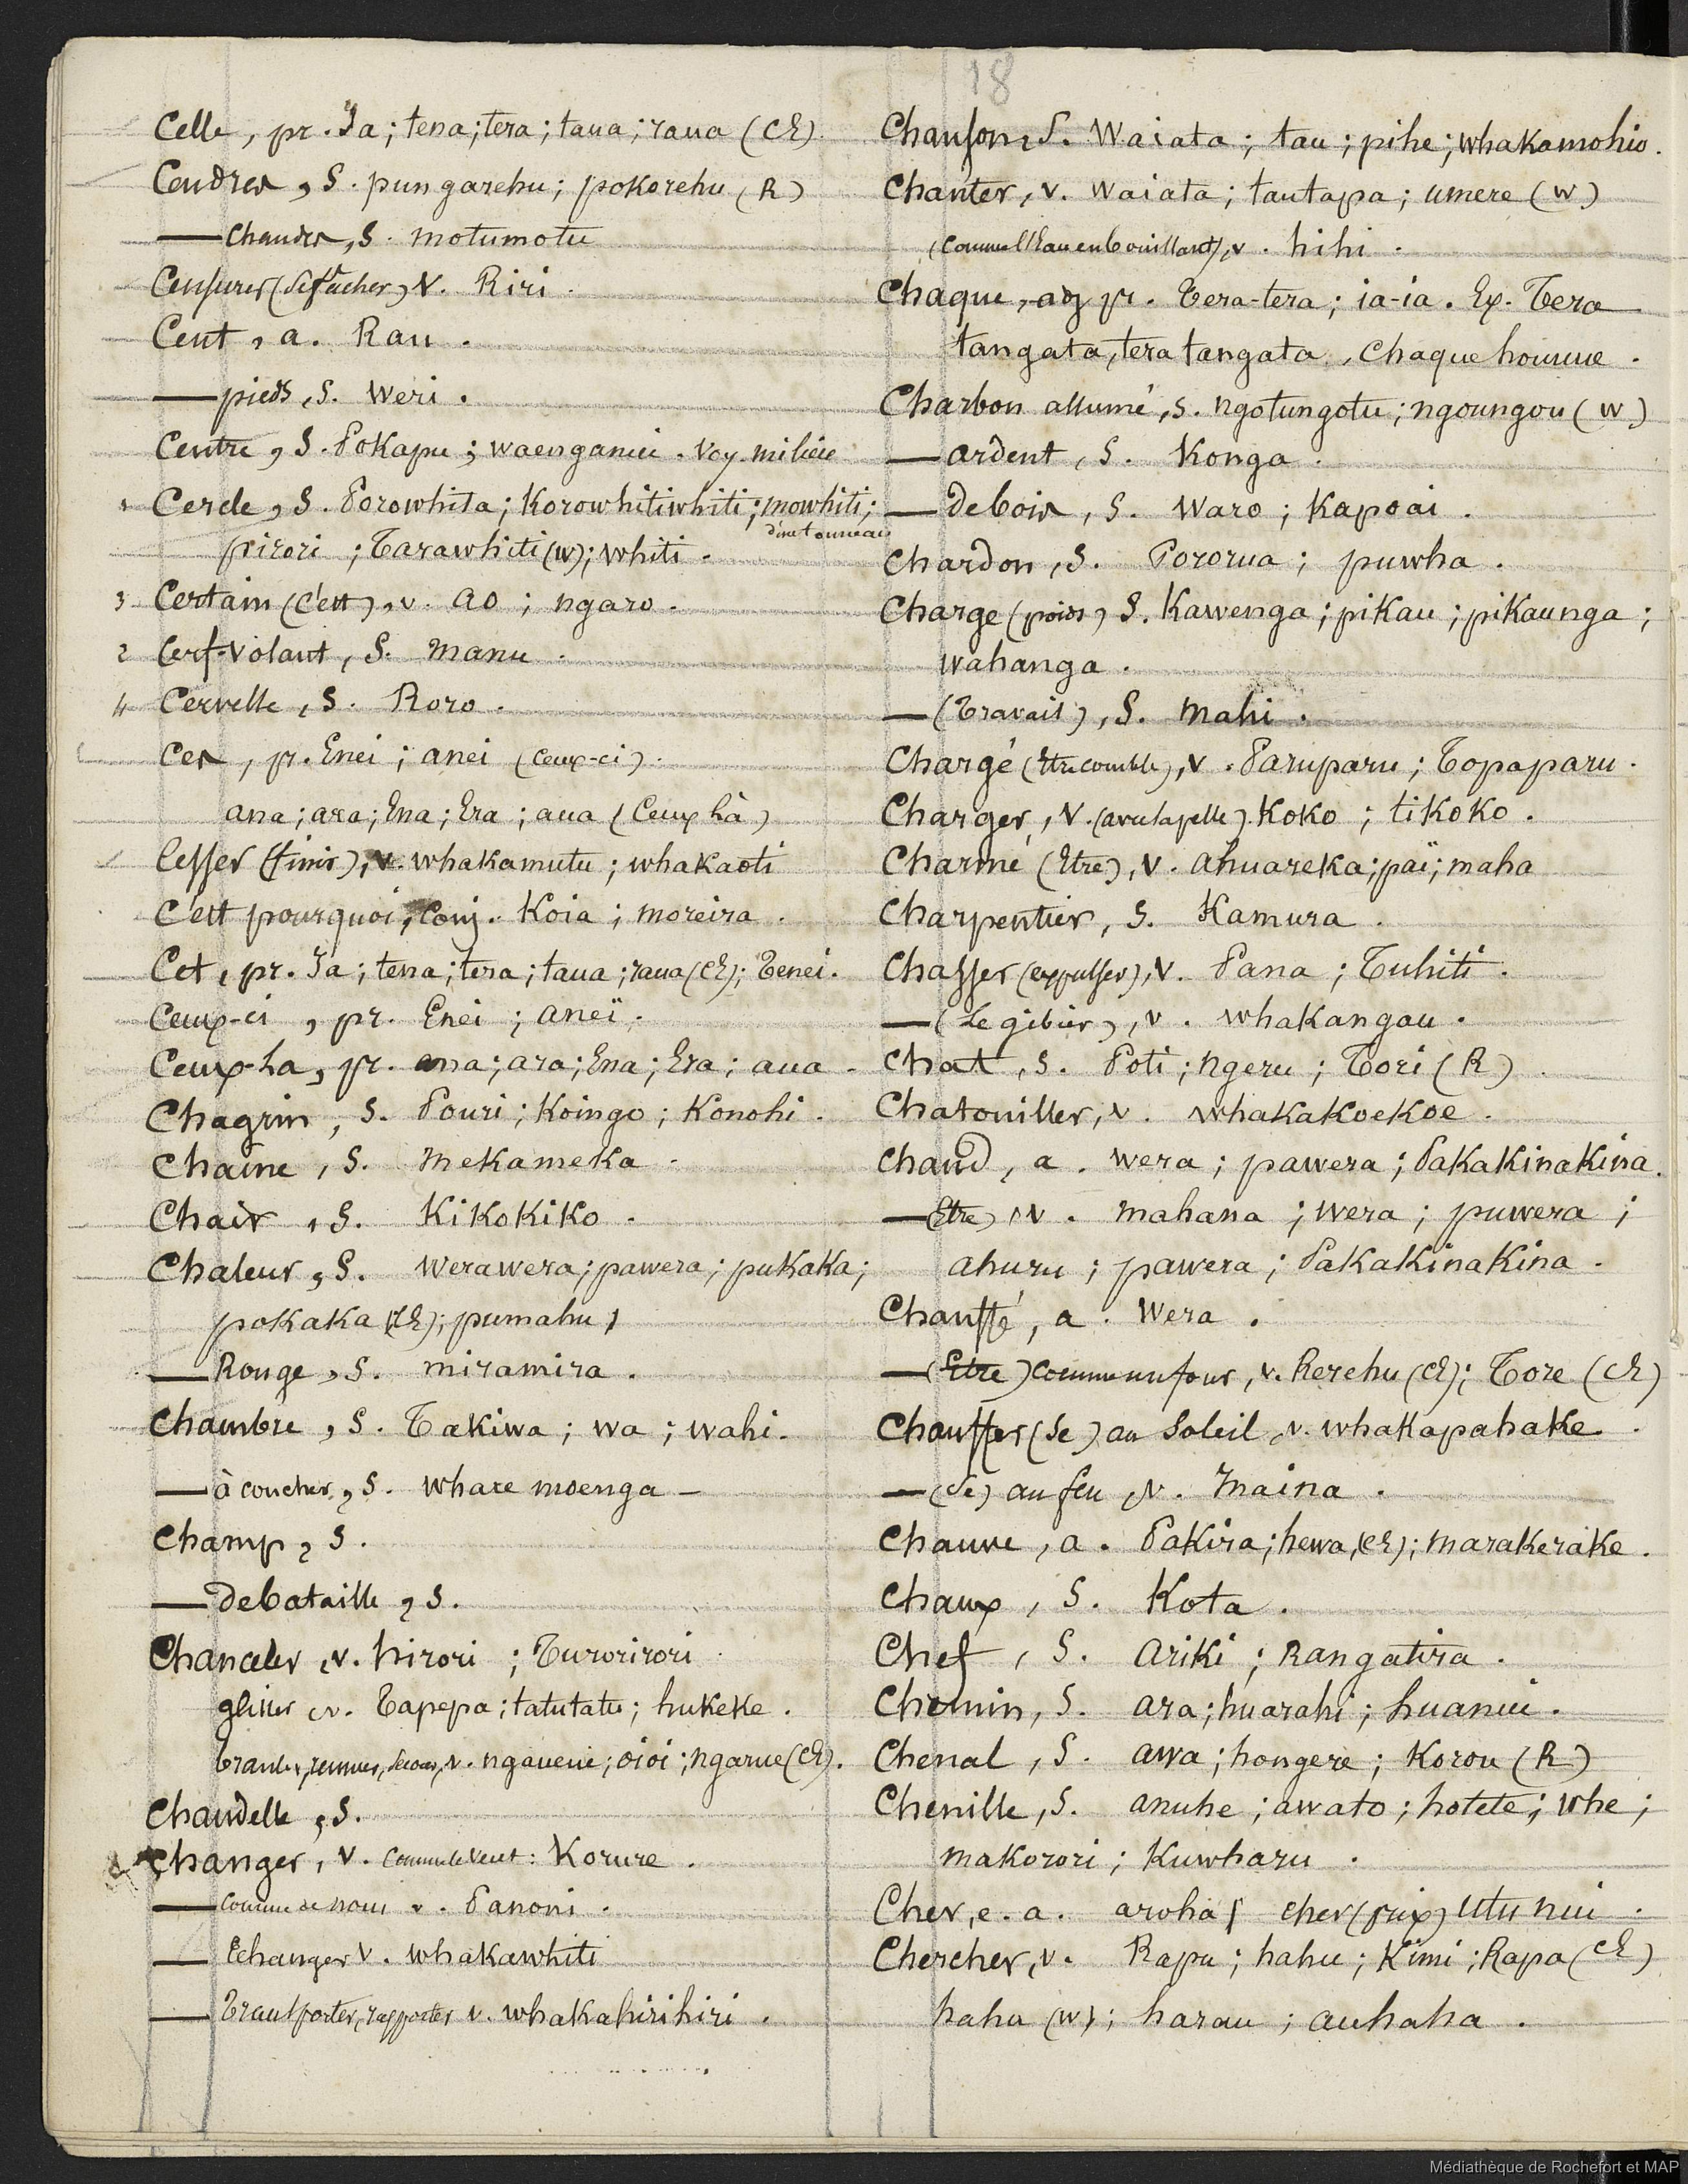 18
Celle, pr. Ia; tena; tera; taua; raua (Ch)
Cendres, S. pungarehu; pokorehu (R)
— chaudes, S. motumotu
Censurer (se facher), V. Riri.
Cent, a. Rau.
— pieds, S. Weri.
Centre, S. Pokapu; waenganui. Voy. milieu
1 Cercle, S. Porowhita; Korowhitiwhiti; mowhiti;
d'une tonneau
pirori; Tarawhiti (w); whiti.
3 Certain (c'est), v. ao; ngaro.
2 Cerf-volant, S. manu.
4 Cervelle, S. Roro.
Ces, pr. Enei; anei (ceux-ci).
ana; ara; Ena; Era; aua (Ceux là)
Cesser (finir), v. whakamutu; whakaoti
C'est pourquoi, conj. Koia; moreira.
Cet, pr. Ia; tena; tera; taua; raua (Ch); Tenei.
Ceux-ci, pr. Enei; aneï.
Ceux-la, pr. ana; ara; Ena; Era; aua.
Chagrin, S. Pouri; Koingo; Konohi.
Chaine, S. mekameka.
Chair, S. Kikokiko.
Chaleur, S. werawera; pawera; pukaka;
pokaka (Ch); pumahu
— Rouge, S. miramira.
Chambre, S. Takiwa; wa; wahi.
— à coucher, S. whare moenga —
Champ, S.
— de bataille, S.
Chanceler, v. hirori; Turorirori.
glisser, v. Tapepa; tatutatu; hukeke.
branler, remuer, secouer, v. ngaueue; oioi; ngarue (Ch).
Chandelle, S.
Changer, V. comme le vent: Korure.
— comme de nom v. Panoni.
— Echanger V. whakawhiti
— Transporter, rapporter v. whakahirihiri.
Chanson, S. Waiata; tau; pihe; whakamohio.
Chanter, v. waiata; tautapa; umere (w)
(comme l'Eau en bouillant), v. hihi.
Chaque, adj pr. Tera-tera; ia-ia. Ex. Tera
tangata, tera tangata, chaque homme.
Charbon allumé, s. ngotungotu; ngoungou (w)
— ardent, S. Konga.
— de bois, S. Waro; Kapoai.
Chardon, S. Pororua; puwha.
Charge (poids), S. Kawenga; pikau; pikaunga;
wahanga.
— (Travail), S. mahi.
Chargé (Etre comble), v. Paruparu; Topaparu.
Charger, v. (avec la pelle) Koko; tikoko.
Charmé (Etre), v. ahuareka; paï; maha
Charpentier, S. Kamura.
Chasser (expulser), v. Pana; Tuhiti.
— (Le gibier), v. whakangau.
Chat, S. Poti; ngeru; Tori (R)
Chatouiller, v. whakakoekoe.
Chaud, a. wera; pawera; Pakakinakina.
— (Etre), v. mahana; wera; puwera;
ahuru; pawera; Pakakinakina.
Chauffé, a. wera.
— (Etre) comme un four, v. Rerehu (Ch); Tore (Ch)
Chauffer (se) au Soleil, v. whakapahake.
— (Se) au feu, v. Inaina.
Chauve, a. Pakira; hewa, (Ch); marakerake.
Chaux, S. Kota.
Chef, S. ariki; Rangatira.
Chemin, S. ara; huarahi; huanui.
Chenal, S. awa; hongere; Korou (R)
Chenille, S. anuhe; awato; hotete; whe;
makorori; Kuwharu.
Cher, e. a. aroha; cher (prix) utu nui.
Chercher, v. Rapu; hahu; Kimi; Rapa (Ch)
haha (w); harau; auhaha.
Médiathèque de Rochefort et MAP